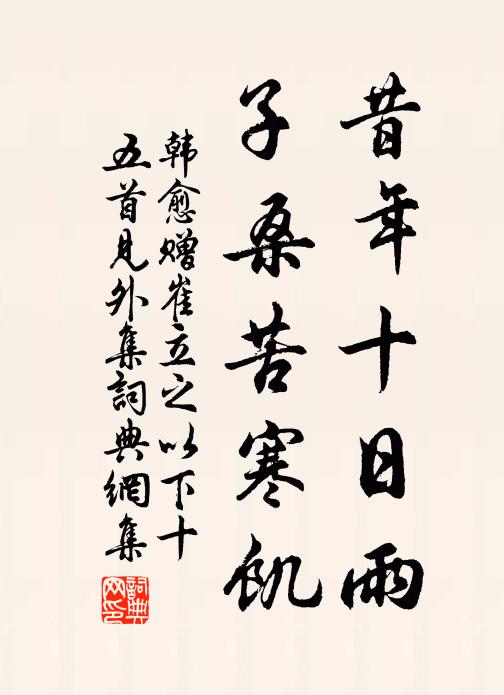 昔年十日雨
子桑苦寒飢
韩愈赠崔立之以下十
五首见外集詞典網集
詞典網印